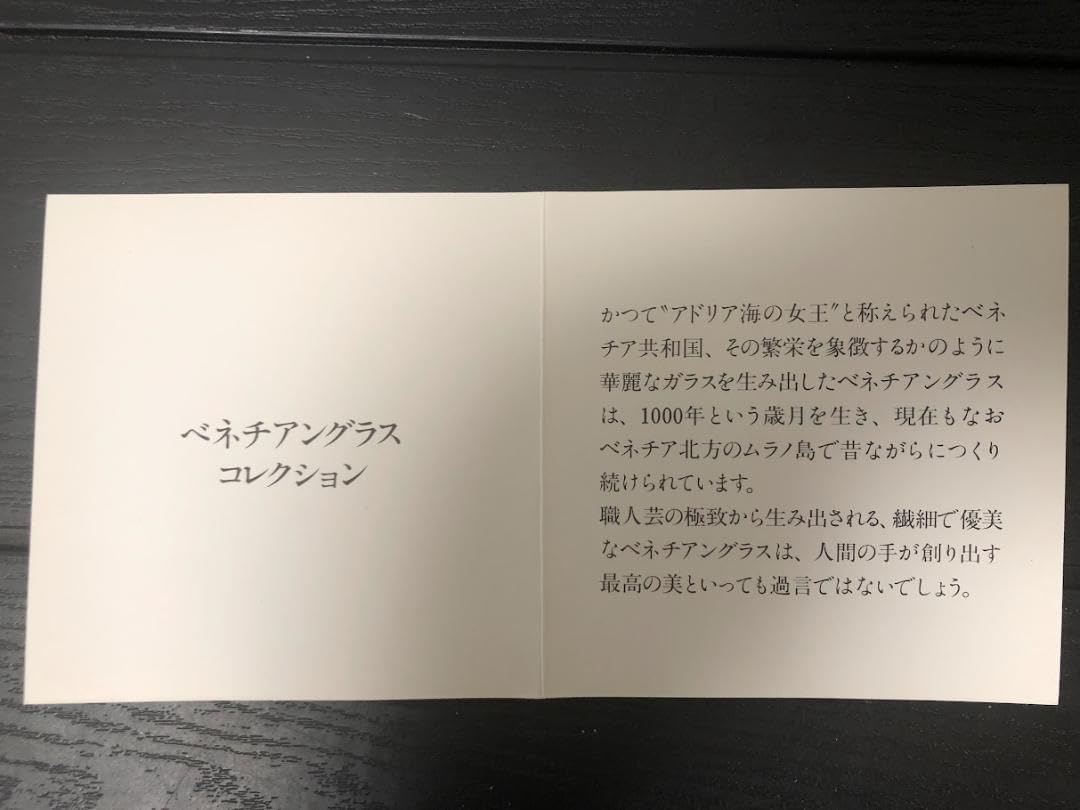 ベネチアングラス
コレクション
かつて〝アドリア海の女王〞と称えられたベネ
チア共和国、その繁栄を象徴するかのように
華麗なガラスを生み出したベネチアングラス
は、1000年という歳月を生き、現在もなお
ベネチア北方のムラノ島で昔ながらにつくり
続けられています。
職人芸の極致から生み出される、繊細で優美
なベネチアングラスは、人間の手が創り出す
最高の美といっても過言ではないでしょう。